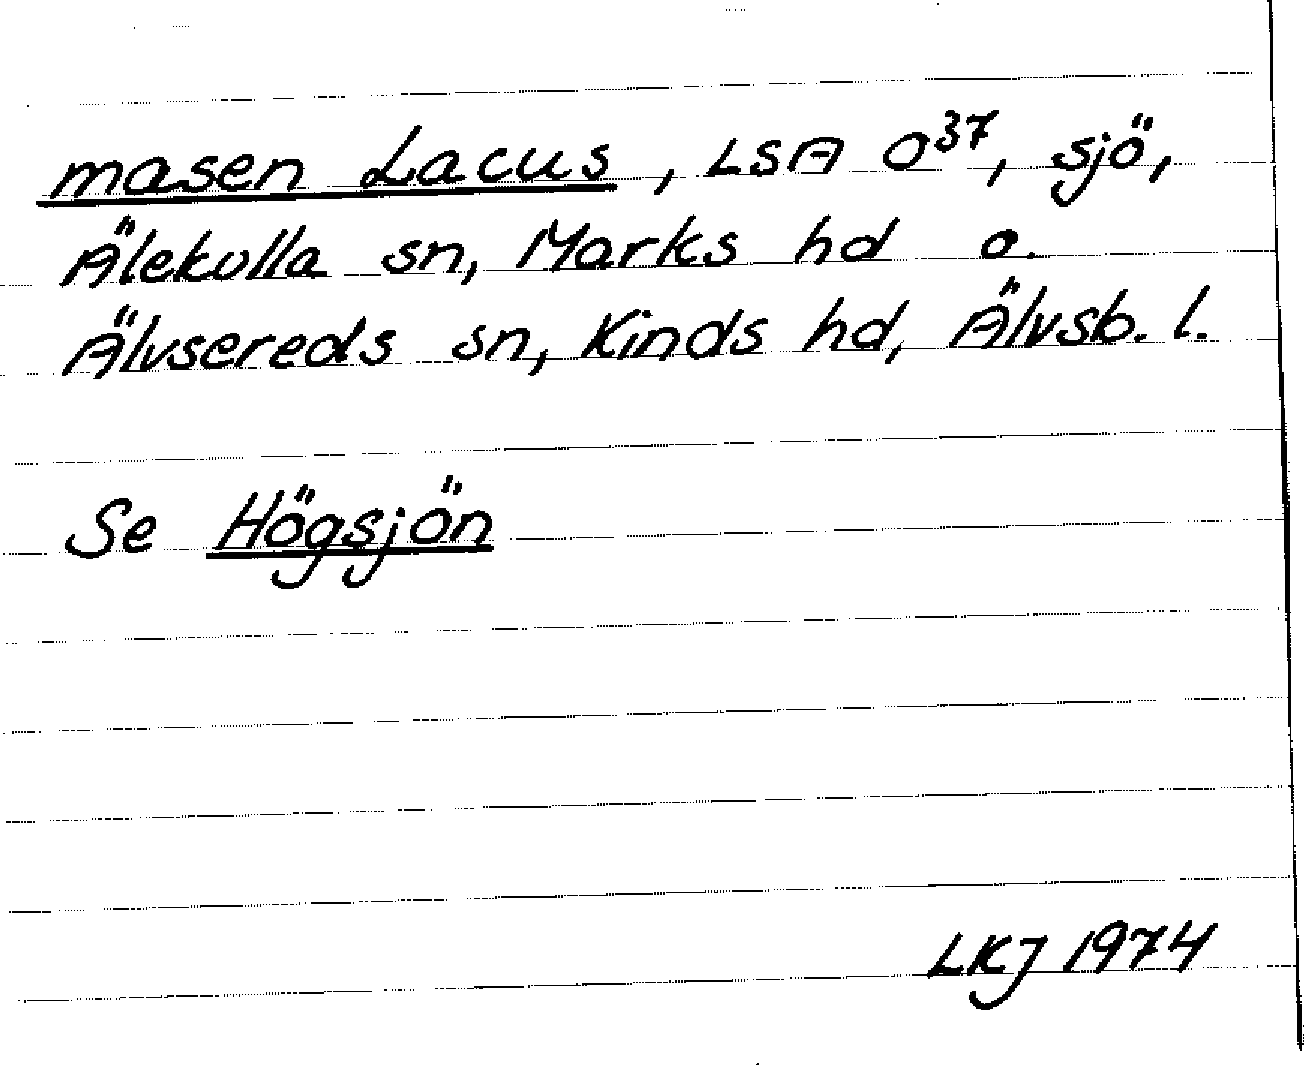 masen Lacus, LSA O³⁷, sjö,
Älekulla sn, Marks hd o.
Älvsereds sn, Kinds hd, Älvsb. l.
Se Högsjön
LKJ 1974